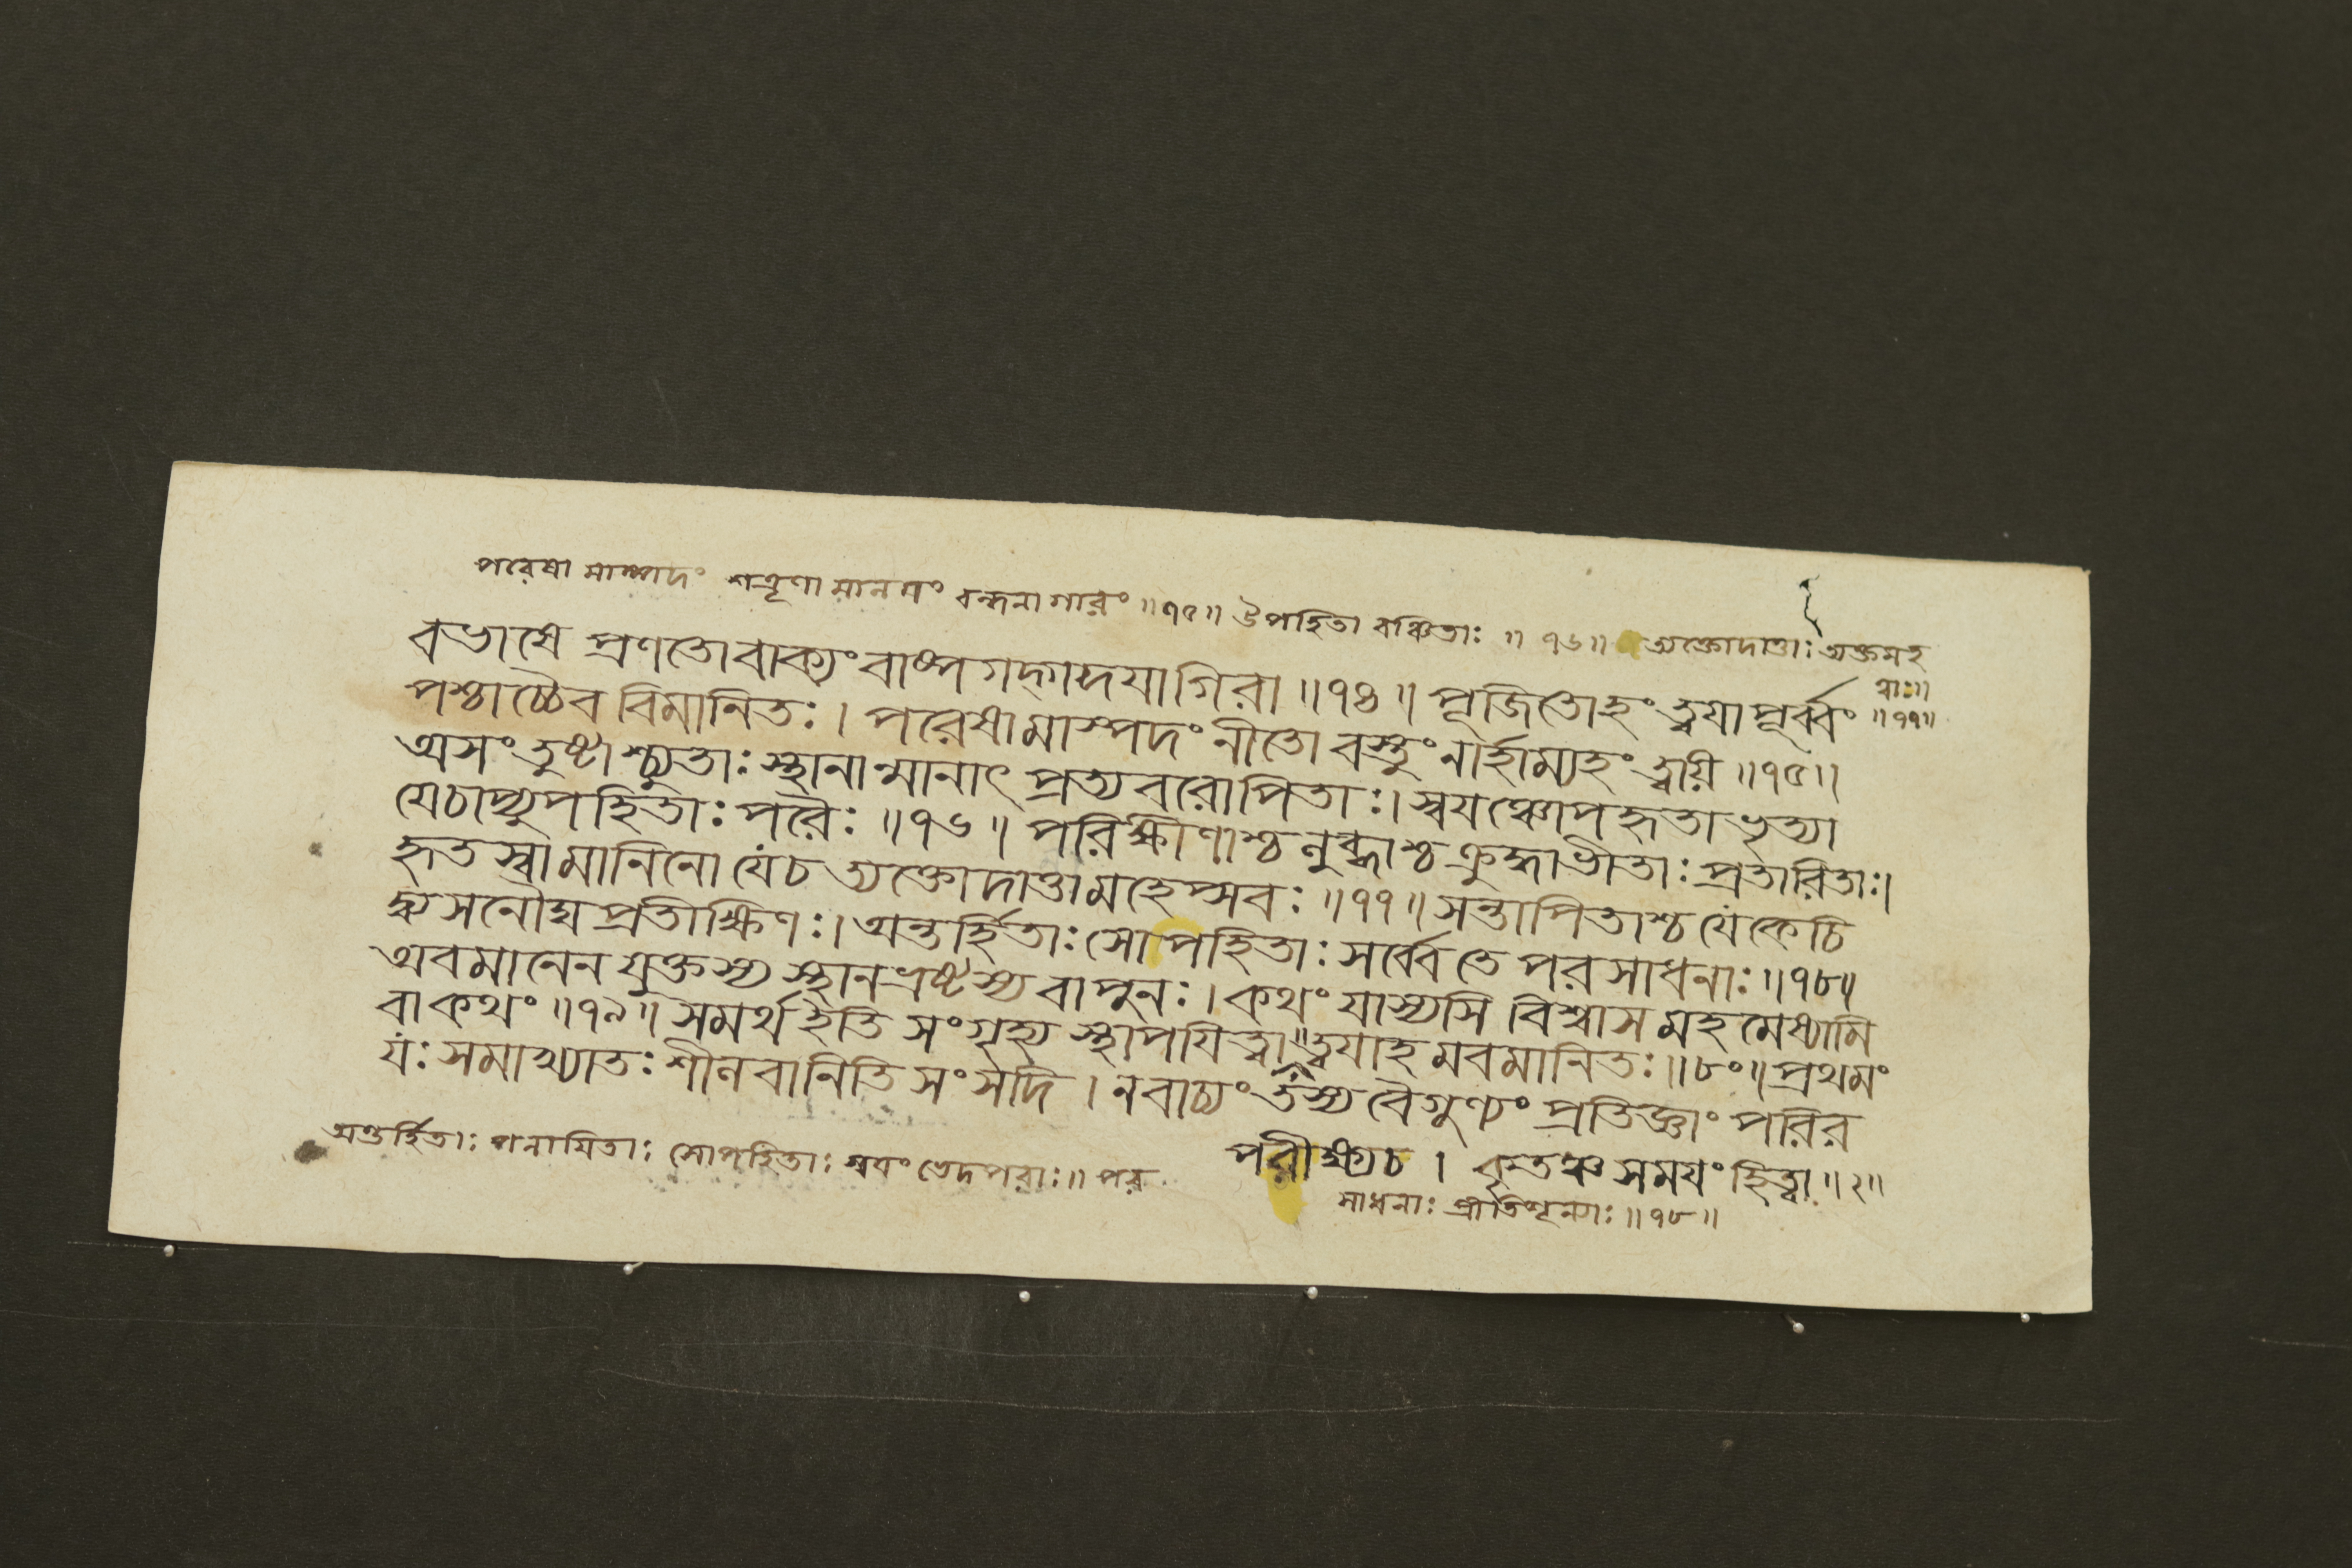 পরেষামাস্পদং শত্রূণামানযং বন্ধনাগারং ॥৭৫॥ উপহিতা বঞ্চিতাঃ ॥ ৭৬॥ ত্যক্তোদাত্তাঃ ত্যক্তমহ
ত্বাঃ॥
॥৭৭॥
বভাষে প্রণতোবাক্যং বাষ্পগদ্গদযাগিরা ॥৭৪॥ পূজিতোহং ত্বযা পূর্ব্বং
পশ্চাচ্চৈব বিমানিতঃ। পরেষামাস্পদং নীতো বস্তুং নার্হাম্যহং ত্বয়ি ॥৭৫॥
অসংতুষ্টাশ্চ্যুতাঃ স্থানান্মানাৎ প্রত্যবরোপিতাঃ। স্বযঞ্চোপহৃতা ভৃত্যা
যেচাপ্যুপহিতাঃ পরৈঃ ॥৭৬॥ পরিক্ষীণাশ্চ লুব্ধাশ্চ ক্রুদ্ধাভীতাঃ প্রতারিতাঃ।
হৃতস্বামানিনো যেচ ত্যক্তোদাত্তামহেপ্সবঃ ॥৭৭॥ সন্তাপিতাশ্চ যেকেচি
দ্ব্যসনৌঘপ্রতীক্ষিণঃ। অন্তর্হিতাঃ সোপহিতাঃ সর্ব্বে তে পরসাধনাঃ ॥৭৮॥
অবমানেন যুক্তস্য স্থানভ্রষ্টস্য বাপুনঃ। কথং যাস্যসি বিশ্বাসমহমেষ্যামি
বাকথং ॥৭৯॥ সমর্থইতি সংগৃহ্য স্থাপযিত্বা ত্বযাহমবমানিতঃ॥৮০॥ প্রথমং
যঃ সমাখ্যাতঃ শীলবানিতি সংসদি। নবাচ্যং তস্য বৈগুণ্যং প্রতিজ্ঞাং পরির
পরীক্ষ্যচ। কৃতঞ্চ সমযং হিত্বা ॥২॥
অন্তর্হিতাঃ পলাযিতাঃ সোপহিতাঃ স্বযং ভেদপরাঃ॥ পর
সাধনাঃ প্রীতিশূন্যাঃ ॥৭৮॥